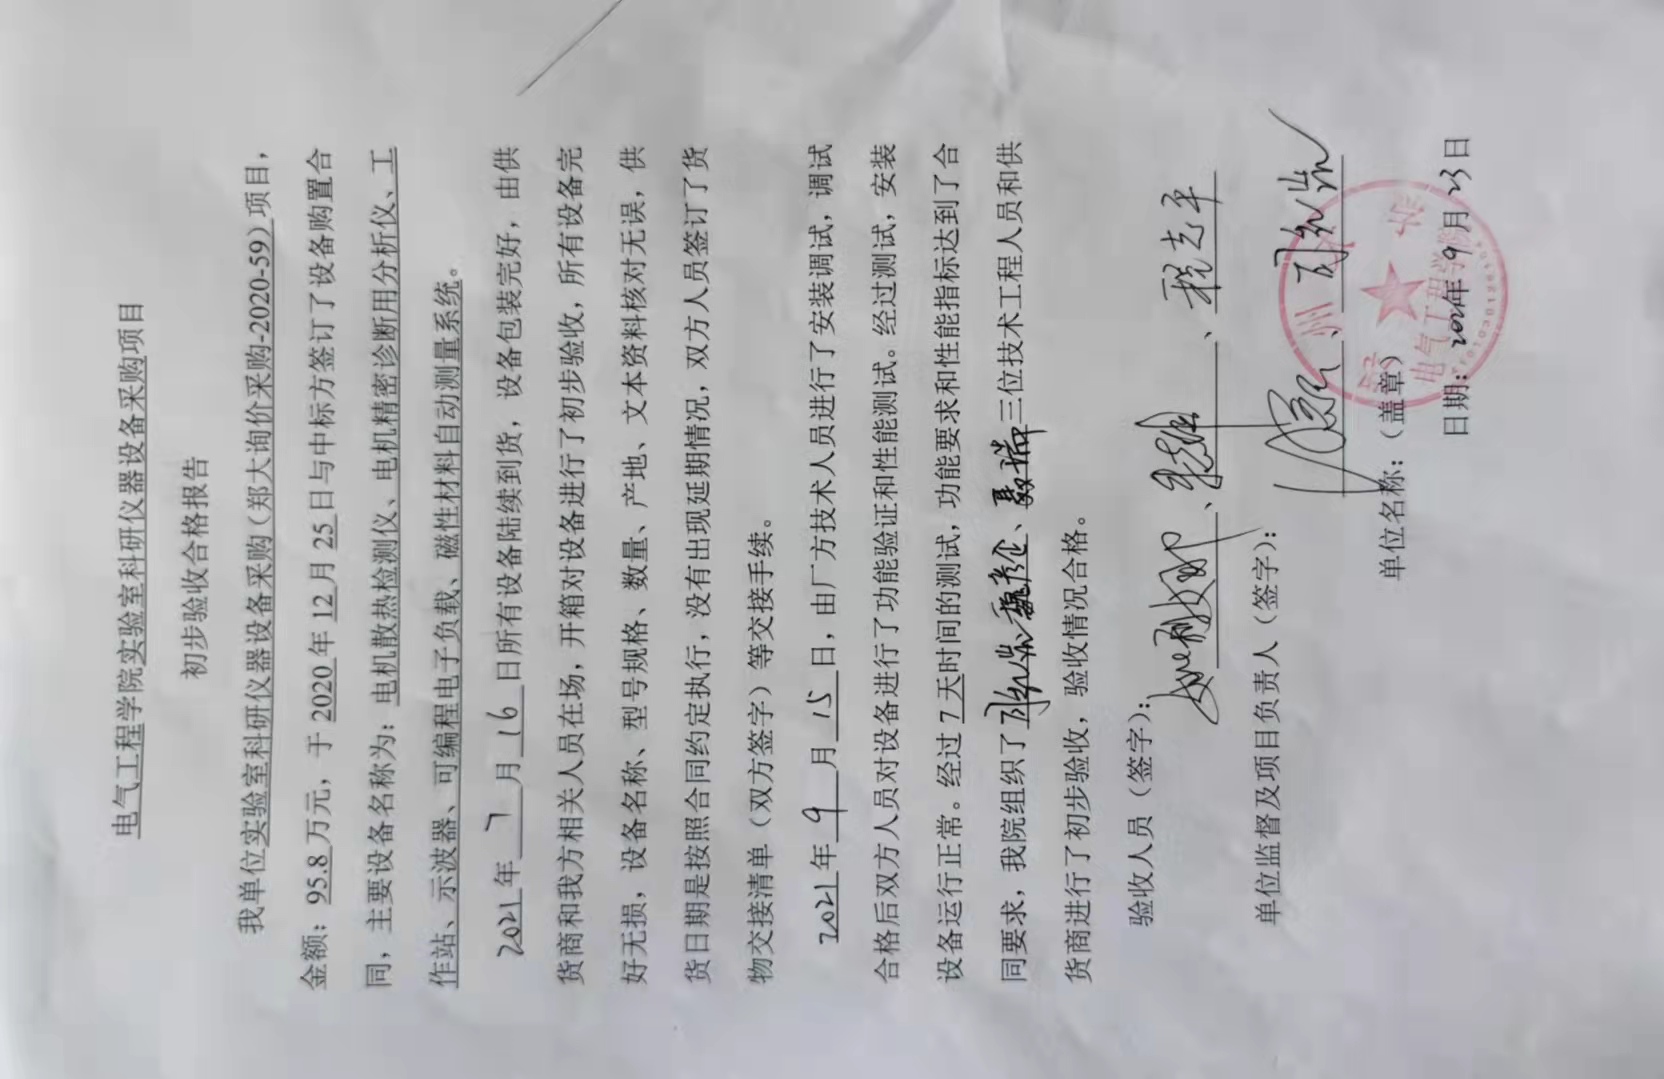 电气工程学院实验室科研仪器设备采购项目
初步验收合格报告
我单位实验室科研仪器设备采购（郑大询价采购-2020-59）项目，
金额：95.8万元，于2020年12月25日与中标方签订了设备购置合
同，主要设备名称为：电机散热检测仪、电机精密诊断用分析仪、工
作站、示波器、可编程电子负载、磁性材料自动测量系统。
2021年7月16日所有设备陆续到货，设备包装完好，由供
货商和我方相关人员在场，开箱对设备进行了初步验收，所有设备完
好无损，设备名称、型号规格、数量、产地、文本资料核对无误，供
货日期是按照合同约定执行，没有出现延期情况，双方人员签订了货
物交接清单（双方签字）等交接手续。
2021年9月15日，由厂方技术人员进行了安装调试，调试
合格后双方人员对设备进行了功能验证和性能测试。经过测试，安装
设备运行正常。经过7天时间的测试，功能要求和性能指标达到了合
同要求，我院组织了、聂瑞三位技术工程人员和供
货商进行了初步验收，验收情况合格。
验收人员（签字）：、、程志平
单位监督及项目负责人（签字）：、
单位名称：（盖章）
日期：2021年9月23日
电气工程学院